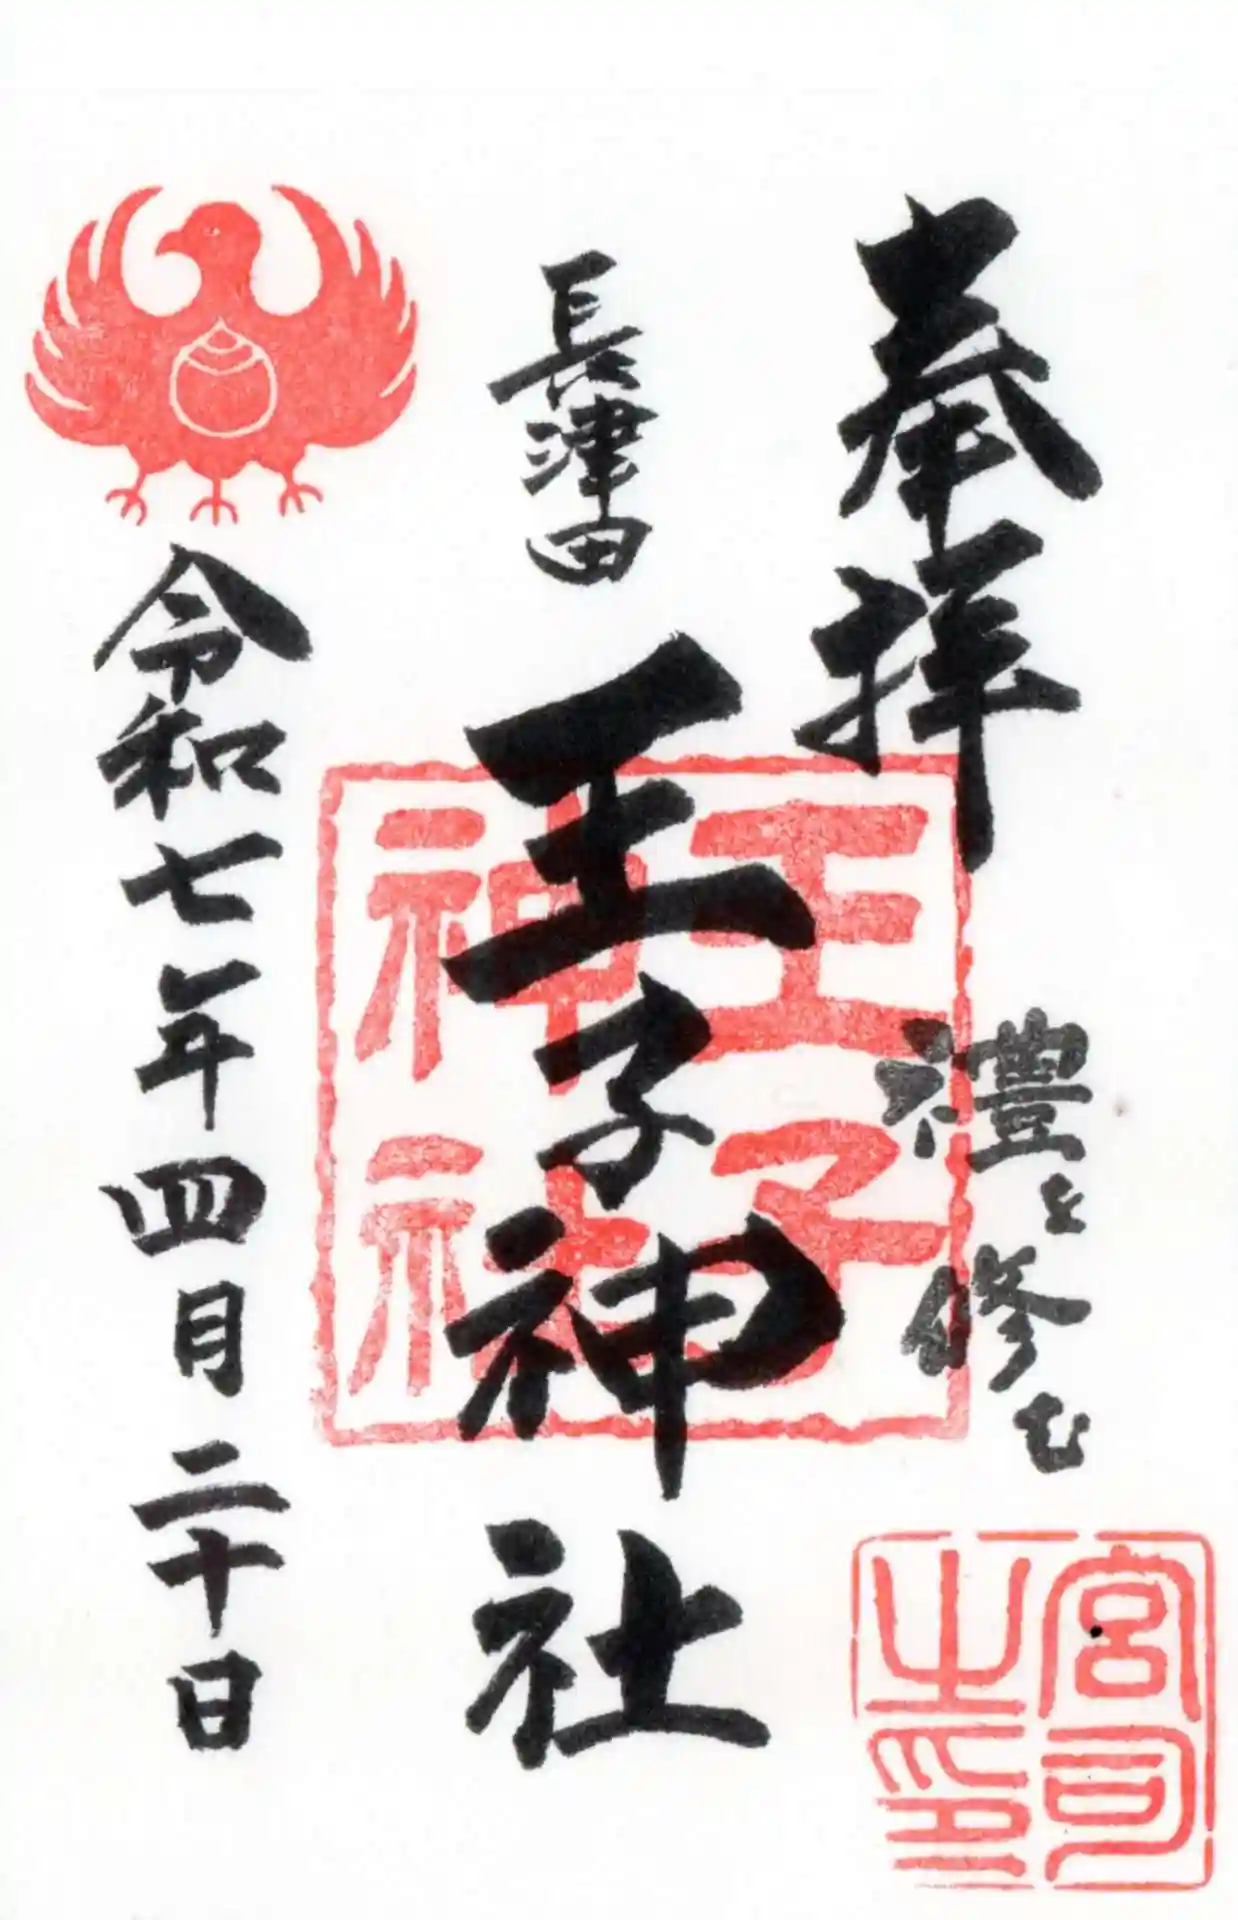 奉拝
禮を修む
宮司之印
長津田
王子神社
王子神社
令和七年四月二十日